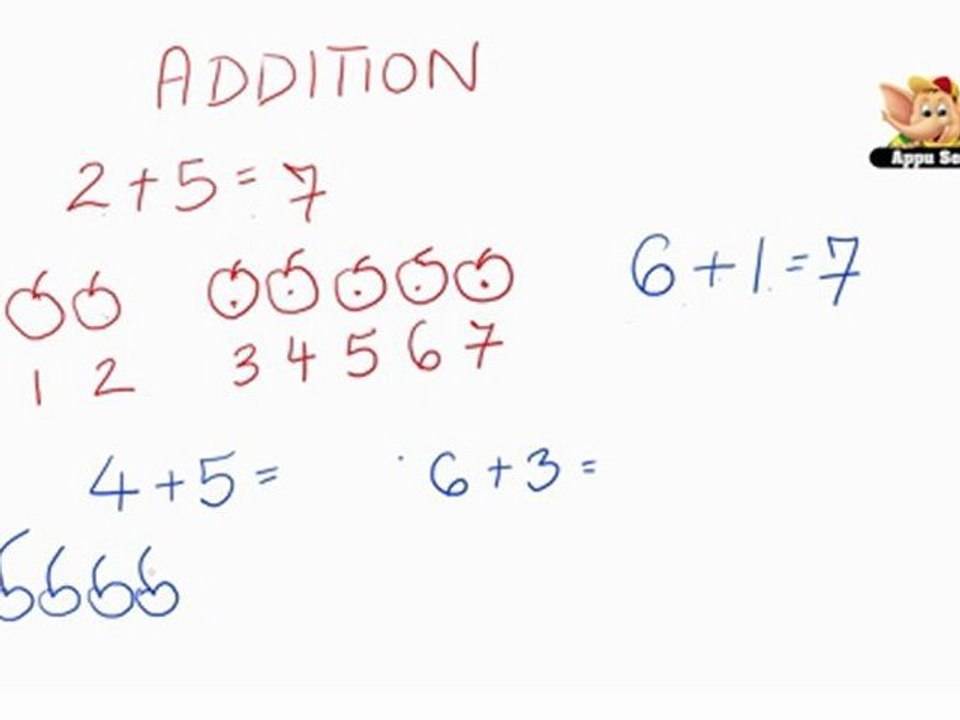 ADDITION
2 + 5 = 7
6 + 1 = 7
1 2 3 4 5 6 7
4 + 5 =
6 + 3 =
Appu Se